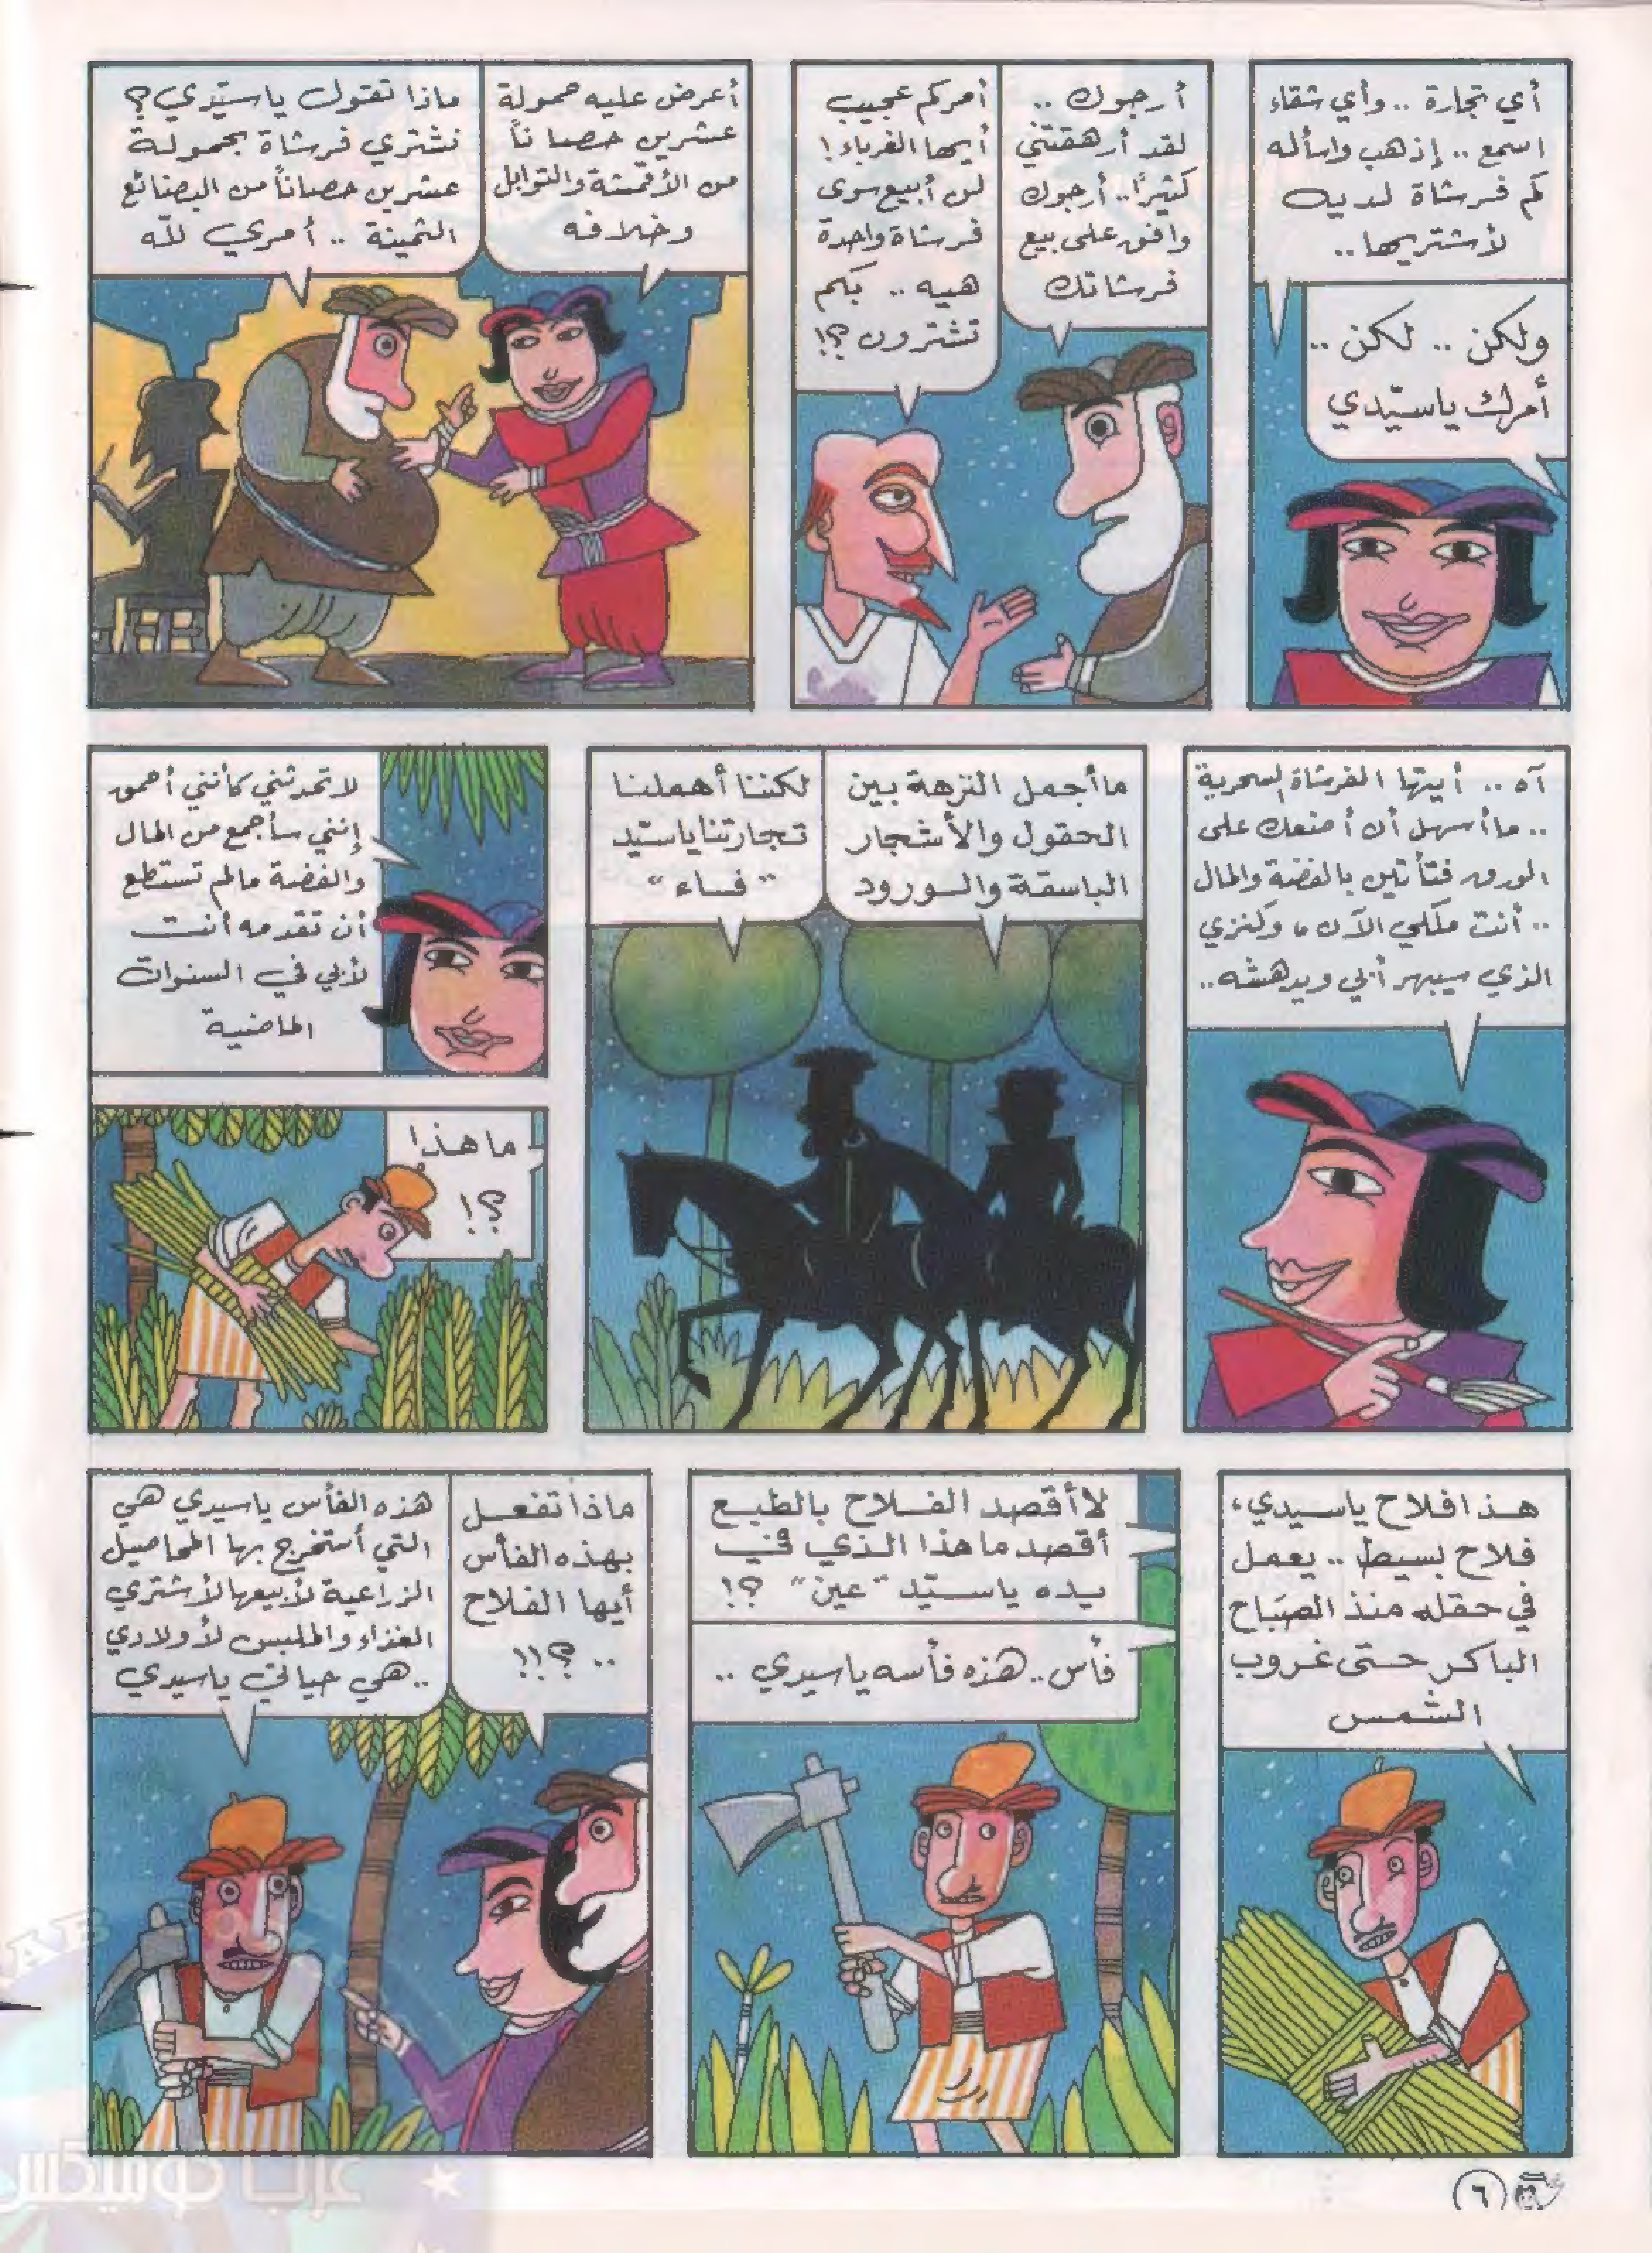 أي تجارة .. وأي شقاء
اسمع .. إذهب واسأله
كم فرشاة لديه
لأشتريها ..
ولكن .. لكن ..
أمرك ياسيّدي
أرجوك ..
لقد أرهقتني
كثيرًا .. أرجوك
وافق على بيع
فرشاتك
أمركم عجيب
أيها الغرباء !
لن أبيع سوى
فرشاة واحدة
هيه .. بكم
تشترون ؟!
أعرض عليه حمولة
عشرين حصاناً
من الأقمشة والتوابل
وخلافه
ماذا تقول ياسيّدي ؟
نشتري فرشاة بحمولة
عشرين حصاناً من البضائع
الثمينة .. أمري للّه
آه .. أيتها الفرشاة السحرية
.. ما أسهل أن أضعك على
الورق فتأتين بالفضة والمال
.. أنت ملكي الآن ، وكنزي
الذي سيبهر أبي ويدهشه ..
ما أجمل النزهة بين
الحقول والأشجار
الباسقة والورود
لكننا أهملنا
تجارتنا ياسيّد
"فاء"
لا تحدثني كأنني أحمق
إنني سأجمع من المال
والفضة مالم تستطع
أن تقدمه أنت
لأبي في السنوات
الماضية
ما هذا
؟!
هذا فلاح ياسيدي،
فلاح بسيط .. يعمل
في حقله منذ الصَباح
الباكر حتى غروب
الشمس
لا أقصد الفلاح بالطبع
أقصد ما هذا الذي في
يده ياسيّد "عين" ؟!
فأس .. هذه فأسه ياسيدي ..
ماذا تفعل
بهذه الفأس
أيها الفلاح
.. ؟!!
هذه الفأس ياسيدي هي
التي أستخرج بها المحاصيل
الزراعية لأبيعها لأشتري
الغذاء والملبس لأولادي
.. هي حياتي ياسيدي
٦
عرب كوميكس